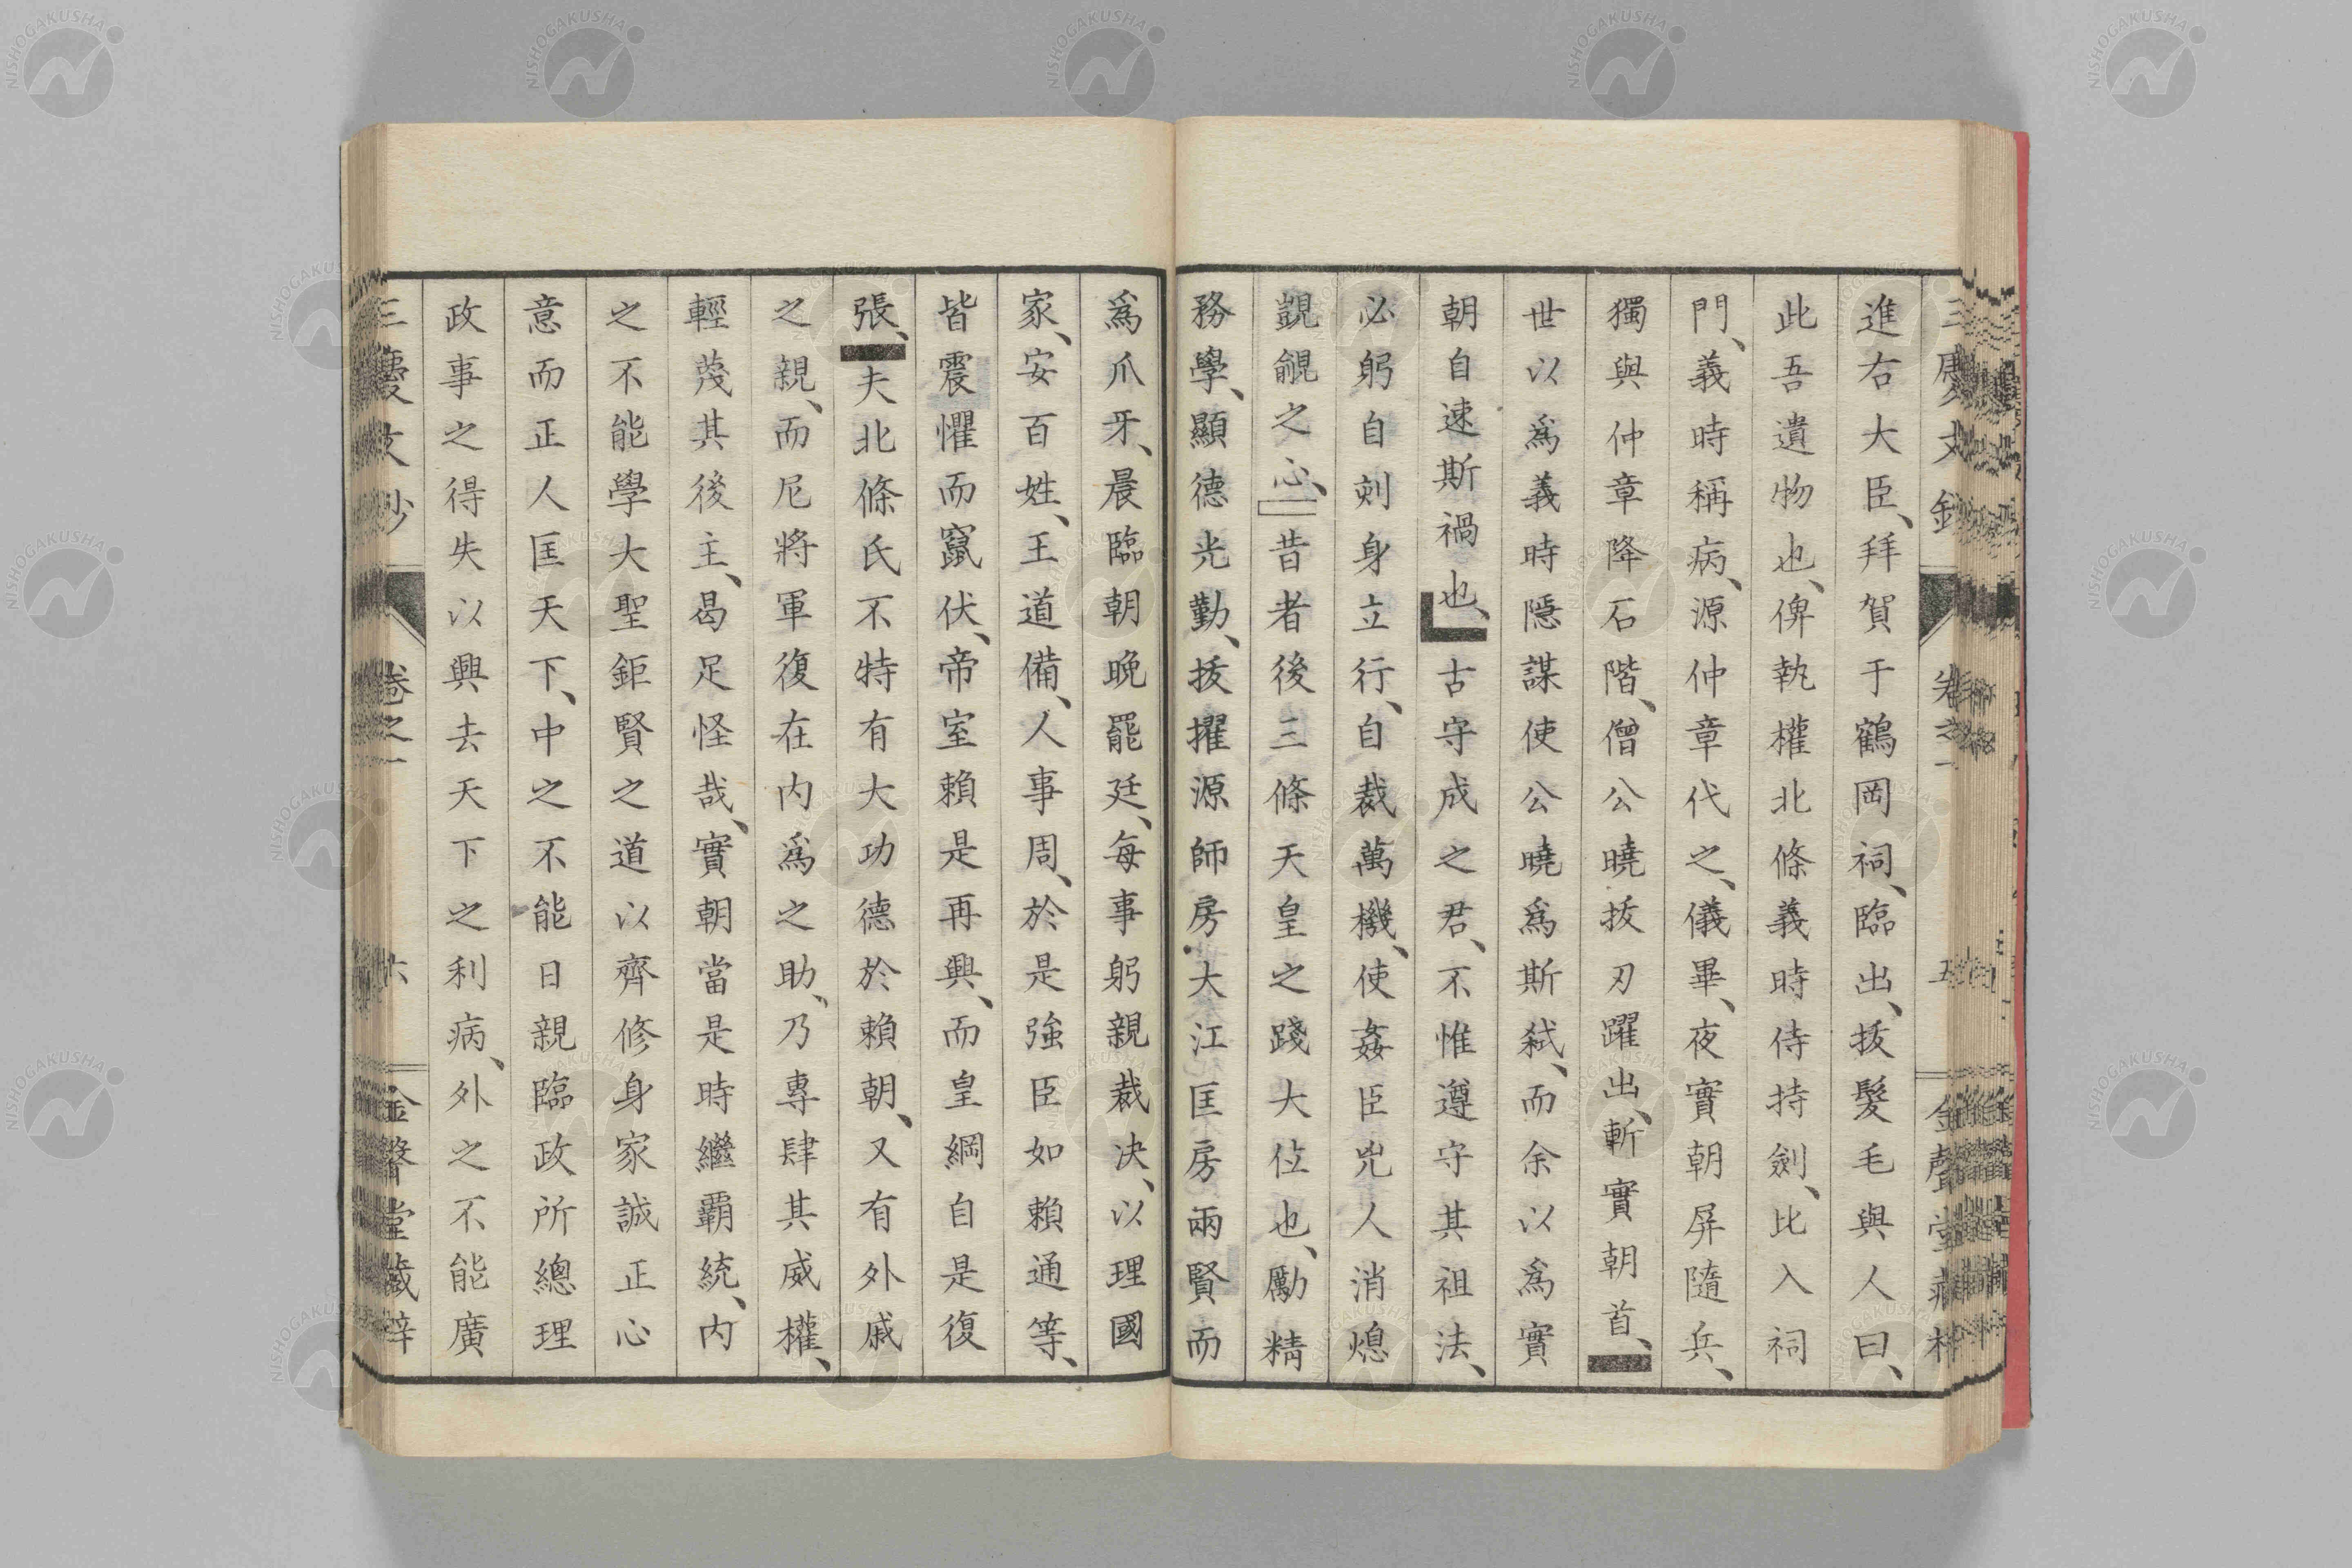 進右大臣、拜賀于鶴岡祠、臨出、拔髮毛與人曰、
此吾遺物也、俾執權北條義時侍持劍、比入祠
門、義時稱病、源仲章代之、儀畢、夜實朝屏隨兵、
獨與仲章降石階、僧公曉拔刃躍出、斬實朝首、
世以爲義時隱謀使公曉爲斯弒、而余以爲實
朝自速斯禍也、古守成之君、不惟遵守其祖法、
必躬自刻身立行、自裁萬機、使姦臣兇人消熄
覬覦之心、昔者後三條天皇之踐大位也、勵精
務學、顯德光勤、拔擢源師房大江匡房兩賢而
爲爪牙、晨臨朝晩罷廷、每事躬親裁决、以理國
家、安百姓、王道備、人事周、於是強臣如賴通等、
皆震懼而竄伏、帝室賴是再興、而皇綱自是復
張、夫北條氏不特有大功德於賴朝、又有外戚
之親、而尼將軍復在內爲之助、乃專肆其威權、
輕蔑其後主、曷足怪哉、實朝當是時繼霸統、内
之不能學大聖鉅賢之道以齊修身家誠正心
意而正人匡天下、中之不能日親臨政所總理
政事之得失以興去天下之利病、外之不能廣
三慶文鈔 卷之一 六 金聲堂藏梓